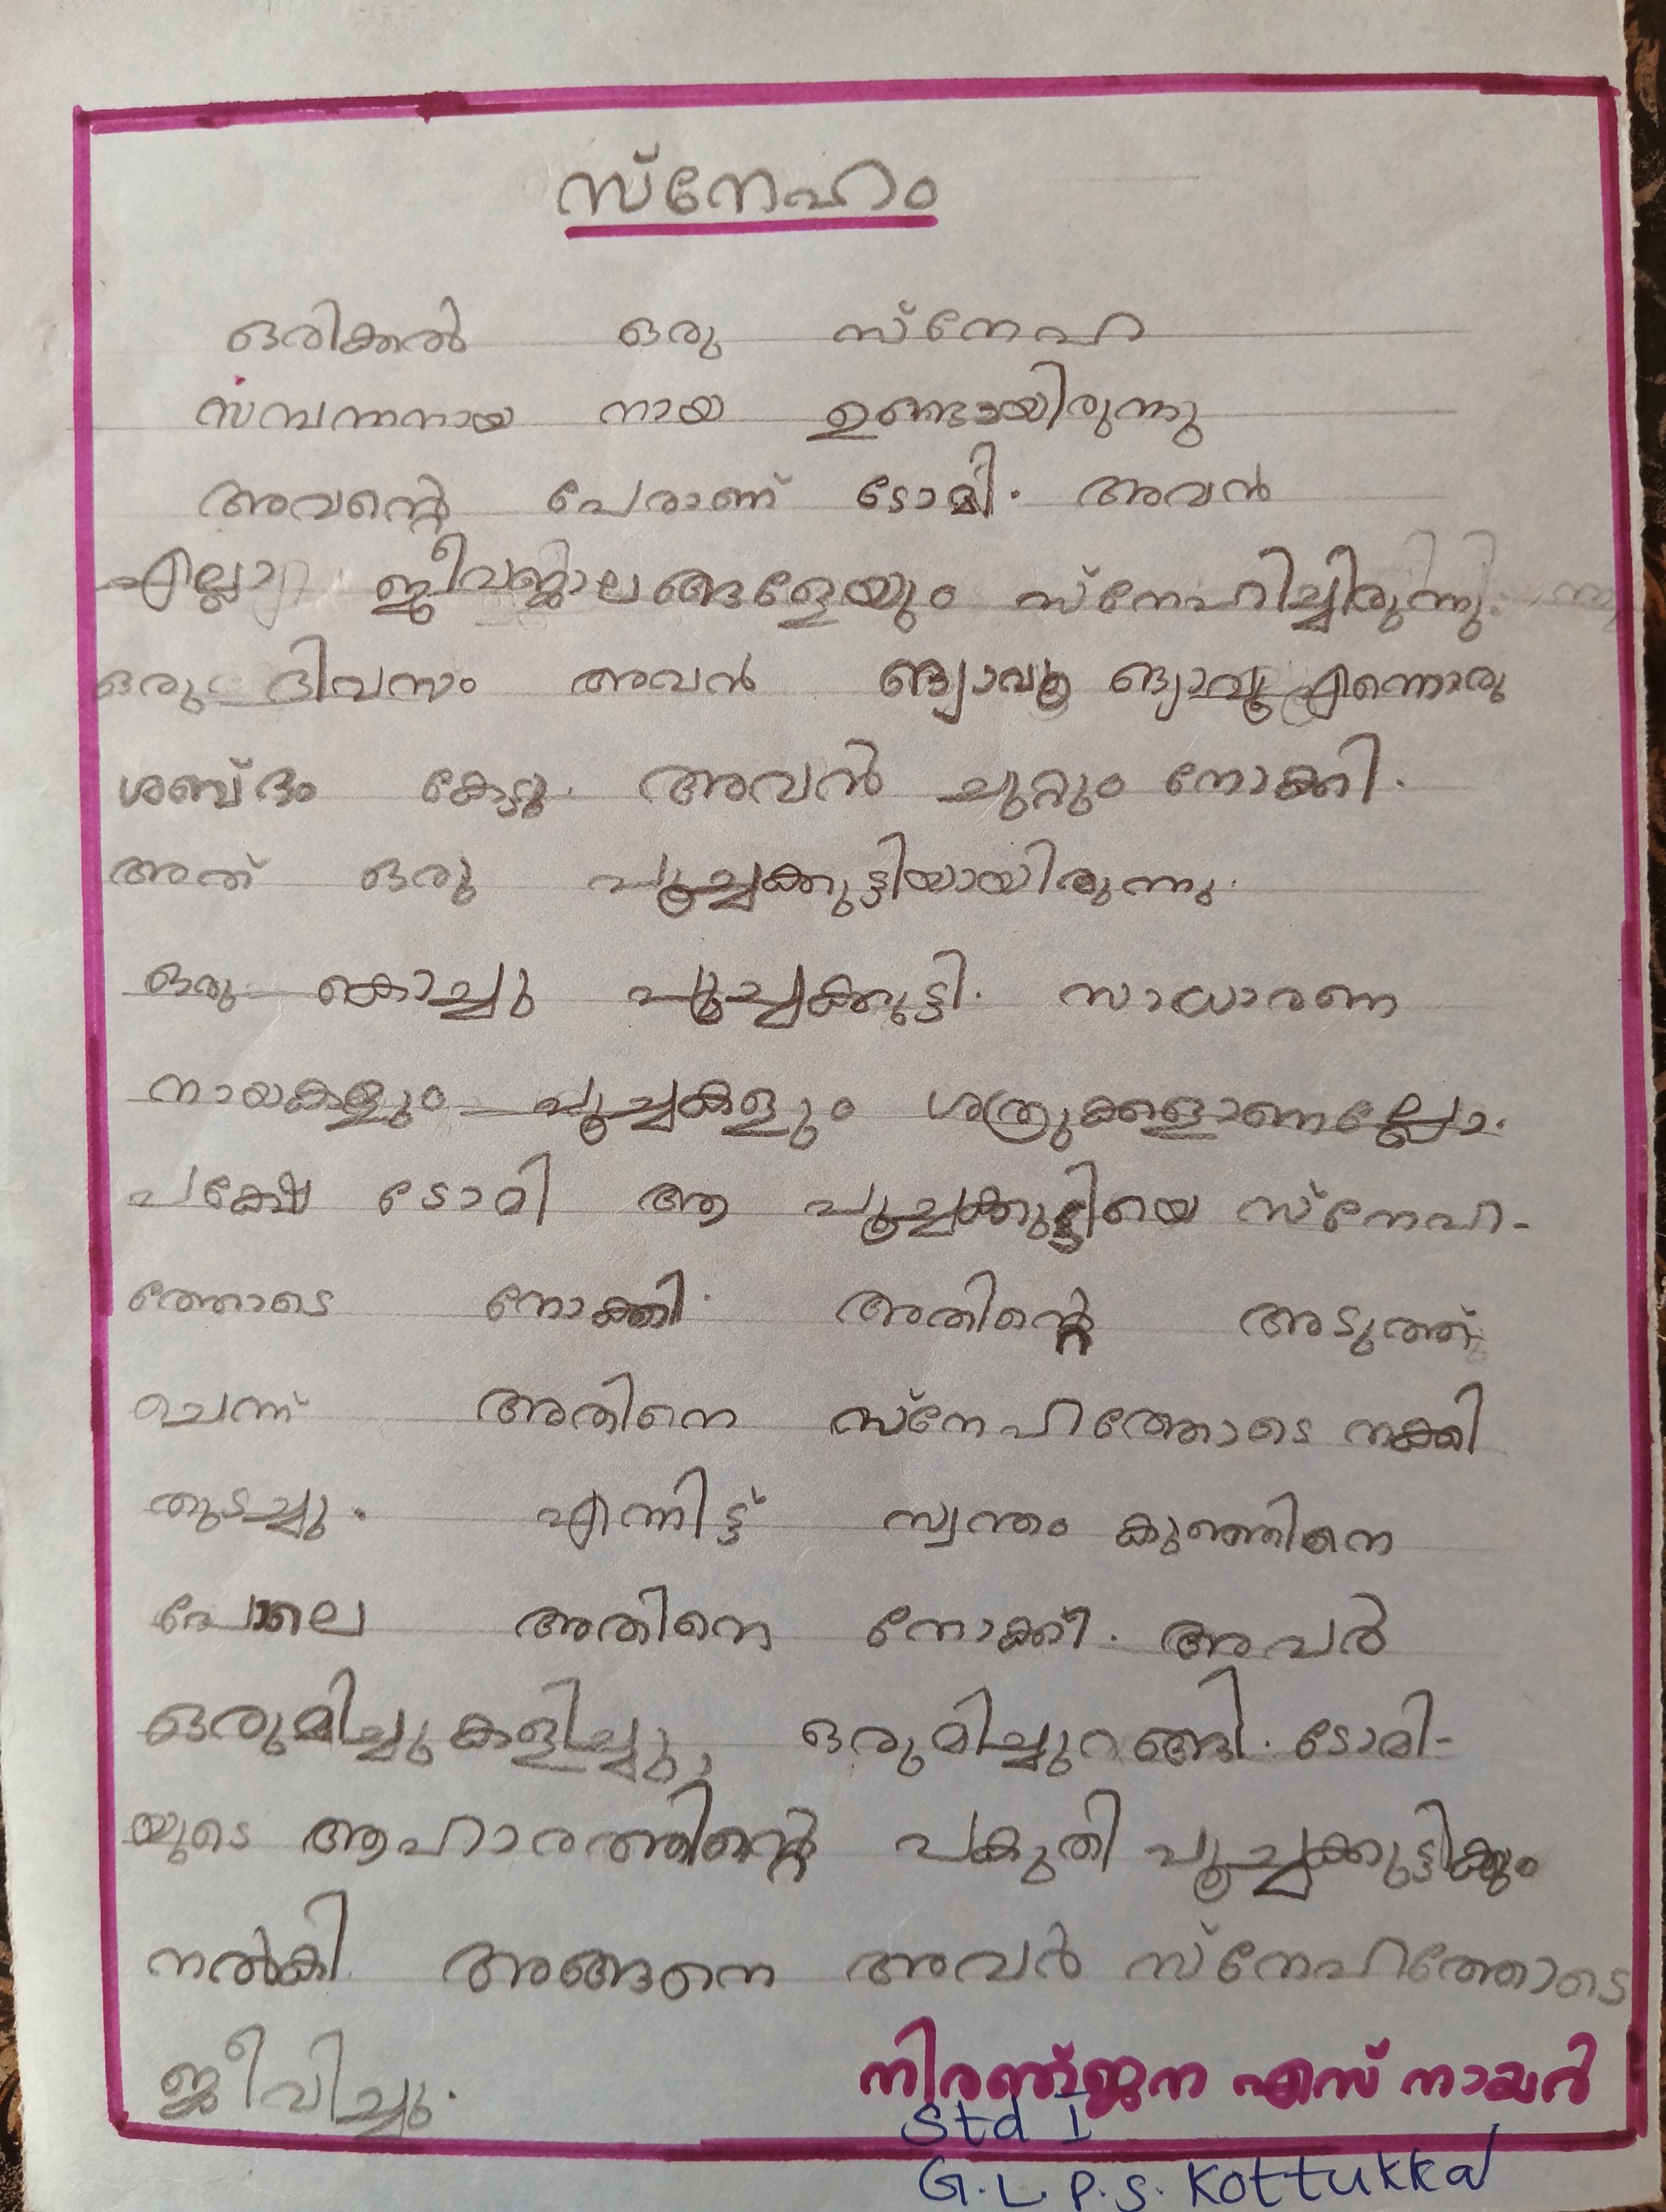 സ്നേഹം
ഒരിക്കൽ ഒരു സ്നേഹ
സമ്പന്നനായ നായ ഉണ്ടായിരുന്നു
അവന്റെ പേരാണ് ടോമി. അവൻ
എല്ലാ ജീവജാലങ്ങളേയും സ്നേഹിച്ചിരുന്നു.
ഒരു ദിവസം അവൻ ങ്യാവൂ ങ്യാവൂ എന്നൊരു
ശബ്ദം കേട്ടു. അവൻ ചുറ്റും നോക്കി.
അത് ഒരു പൂച്ചക്കുട്ടിയായിരുന്നു.
ഒരു കൊച്ചു പൂച്ചക്കുട്ടി. സാധാരണ
നായകളും പൂച്ചകളും ശത്രുക്കളാണല്ലോ.
പക്ഷേ ടോമി ആ പൂച്ചക്കുട്ടിയെ സ്നേഹ-
ത്തോടെ നോക്കി. അതിന്റെ അടുത്ത്
ചെന്ന് അതിനെ സ്നേഹത്തോടെ നക്കി
തുടച്ചു. എന്നിട്ട് സ്വന്തം കുഞ്ഞിനെ
പോലെ അതിനെ നോക്കി. അവർ
ഒരുമിച്ചുകളിച്ചു, ഒരുമിച്ചുറങ്ങി. ടോമി-
യുടെ ആഹാരത്തിന്റെ പകുതി പൂച്ചക്കുട്ടിക്കും
നൽകി. അങ്ങനെ അവർ സ്നേഹത്തോടെ
ജീവിച്ചു.
നിരഞ്ജന എസ് നായർ
Std I
G.L.P.S. Kottukkal